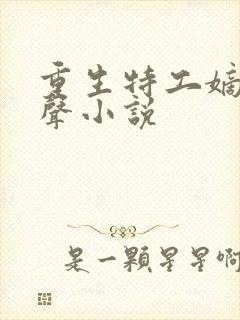 重生特工嫡
聲小説
是一顆星星啊